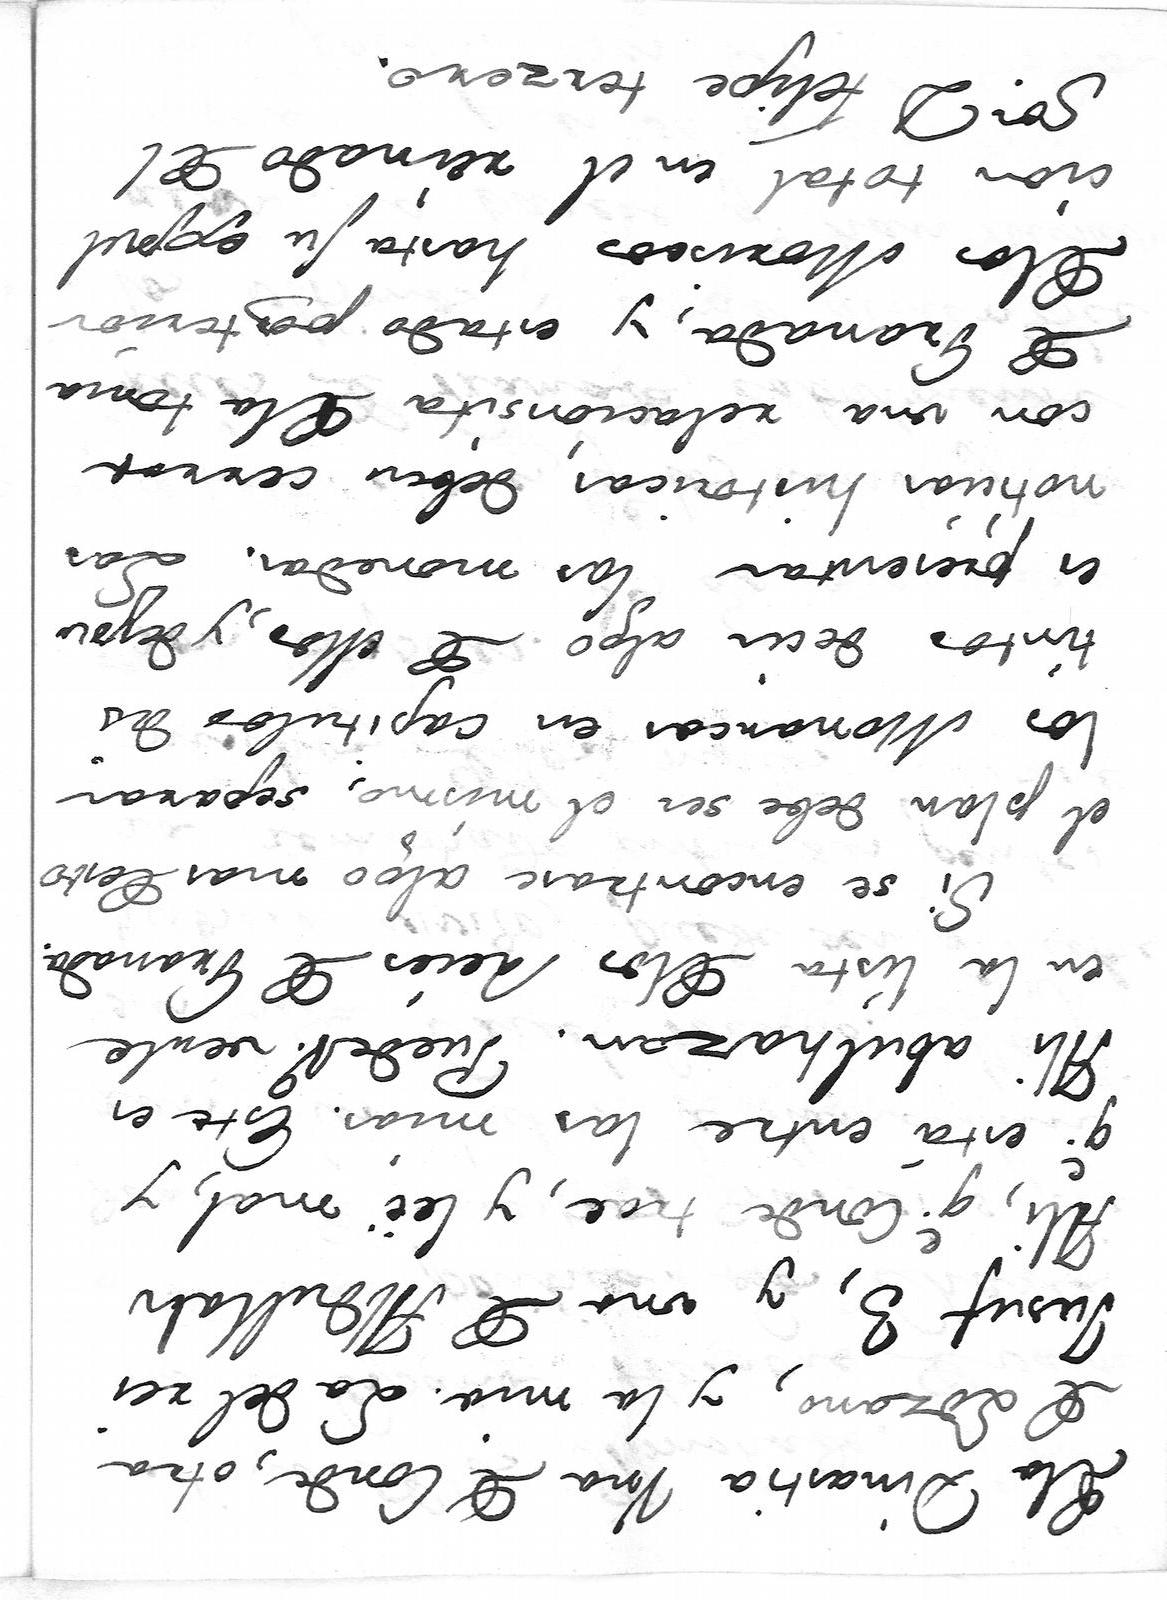 dela Dinastia Una de Conde, otra
de Lozano, y la mia. La del rei
Jusuf 3, y una de Abdullah
Ali, q.e Conde trae, y leí mal, y
q.e está entre las mias. Este es
Ali abulhazan. Puede V. verle
en la lista delos Reies de Granada.
Si se encontrase algo mas desto
el plan debe ser el mismo, separar
los Monarcas en capitulos dis
tintos decir algo de ellos, y despu
es presentar las monedas. Las
noticias historicas, deben cerrar
con una relacionsita dela toma
de Granada, y estado posterior
delos Moriscos hasta su expul
cion total en el reinado del
Sor. D Felipe terzero.